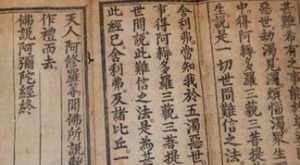 惡世劫濁見濁煩惱濁
中得阿耨多羅三藐三菩提
生說是一切世間難信之
舍利弗當知我於五濁惡
事得阿耨多羅三藐三菩提
世間說此難信之法是為甚
此經已舍利弗及諸比丘一
天人阿修羅等聞佛所說歡
作禮而去
佛說阿彌陀經終